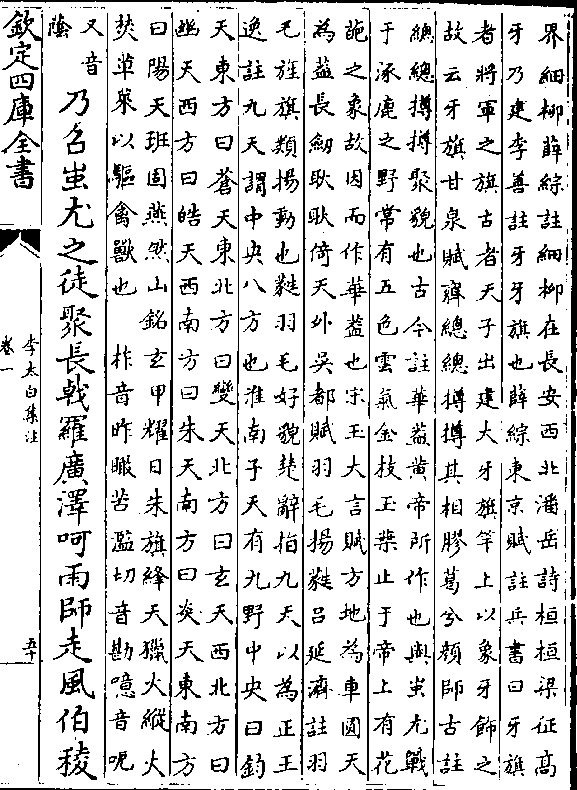 界細柳薛綜註細柳在長安西北潘岳詩桓桓梁征高
牙乃建李善註牙牙旗也薛綜東京賦註兵書曰牙旗
者將軍之旗古者天子出建大牙旗竿上以象牙飾之
故云牙旗甘泉賦齊總總撙撙其相膠葛兮顔師古註
總總撙撙聚貌也古今註華葢黄帝所作也與蚩尤戰
于涿鹿之野常有五色雲氣金枝玉葉止于帝上有花
葩之象故因而作華葢也宋玉大言賦方地為車圓天
為葢長劒耿耿倚天外吳都賦羽毛揚蕤吕延濟註羽
毛旌旗類揚動也蕤羽毛好貌楚辭指九天以為正王
逸註九天謂中央八方也淮南子天有九野中央曰鈞
天東方曰蒼天東北方曰變天北方曰玄天西北方曰
幽天西方曰皓天西南方曰朱天南方曰炎天東南方
曰陽天班固燕然山銘玄甲耀日朱旗絳天獵火縱火
焚草萊以驅禽獸也 柞音昨瞰苦濫切音勘噫音呃
又音
陰
乃召蚩尤之徒聚長戟羅廣澤呵雨師走風伯稜
欽定四庫全書
李太白集注
卷一
五十